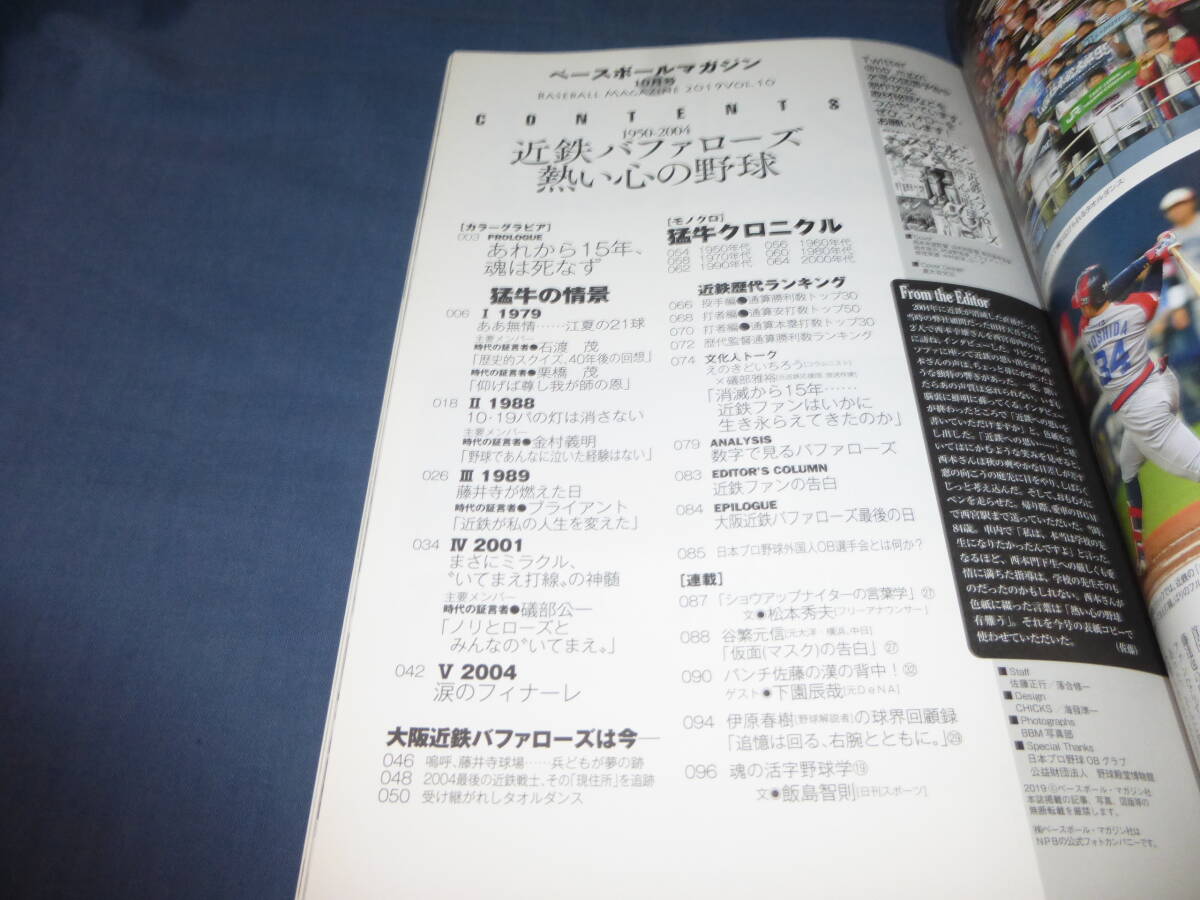 ベースボールマガジン
10月号
BASEBALL MAGAZINE 2019 VOL.10
CONTENTS
1950-2004
近鉄バファローズ
熱い心の野球
[カラーグラビア]
003 PROLOGUE
あれから15年、
魂は死なず
猛牛の情景
006 Ⅰ 1979
ああ無情……江夏の21球
主要メンバー
時代の証言者●石渡 茂
「歴史的スクイズ、40年後の回想」
時代の証言者●栗橋 茂
「仰げば尊し我が師の恩」
018 Ⅱ 1988
10・19パの灯は消さない
主要メンバー
時代の証言者●金村義明
「野球であんなに泣いた経験はない」
026 Ⅲ 1989
藤井寺が燃えた日
時代の証言者●ブライアント
「近鉄が私の人生を変えた」
034 Ⅳ 2001
まさにミラクル、
“いてまえ打線”の神髄
主要メンバー
時代の証言者●礒部公一
「ノリとローズと
みんなの“いてまえ”」
042 Ⅴ 2004
涙のフィナーレ
大阪近鉄バファローズは今―
046 嗚呼、藤井寺球場……兵どもが夢の跡
048 2004最後の近鉄戦士、その「現住所」を追跡
050 受け継がれしタオルダンス
[モノクロ]
猛牛クロニクル
054 1950年代 056 1960年代
058 1970年代 060 1980年代
062 1990年代 064 2000年代
近鉄歴代ランキング
066 投手編●通算勝利数トップ30
068 打者編●通算安打数トップ50
070 打者編●通算本塁打数トップ30
072 歴代監督通算勝利数ランキング
074 文化人トーク
えのきどいちろう[コラムニスト]
×礒部雅裕
「消滅から15年……
近鉄ファンはいかに
生き永らえてきたのか」
079 ANALYSIS
数字で見るバファローズ
083 EDITOR'S COLUMN
近鉄ファンの告白
084 EPILOGUE
大阪近鉄バファローズ最後の日
085 日本プロ野球外国人OB選手会とは何か?
[連載]
087 「ショウアップナイターの言葉学」㉑
文●松本秀夫[フリーアナウンサー]
088 谷繁元信[元大洋・横浜、中日]
「仮面(マスク)の告白」㉗
090 パンチ佐藤の漢の背中!㉜
ゲスト●下園辰哉[元DeNA]
094 伊原春樹[野球解説者]の球界回顧録
「追憶は回る、右腕とともに。」㉙
096 魂の活字野球学⑲
文●飯島智則[日刊スポーツ]
Twitter
つぶやいています。
ぜひ、フォローを
お願いします!
From the Editor
2004年に近鉄が消滅した直後だった。
ペンを走らせた。帰り際、愛車のBGM
で西宮駅まで送っていただいた。当時、
84歳。車内で「私は、本当は学校の先
生になりたかったんですよ」と言った。
なるほど、西本門下生への厳しくも愛
情に満ちた指導は、学校の先生そのも
のだったのかもしれない。西本さんが
色紙に綴った言葉は「熱い心の野球
有難う」。それを今号の表紙コピーで
使わせていただいた。
(佐藤)
■Staff
佐藤正行/落合修一
■Design
CHICKS
■Photographs
BBM写真部
■Special Thanks
日本プロ野球OBクラブ
公益財団法人 野球殿堂博物館
2019 ©ベースボール・マガジン社
本誌掲載の記事、写真、図版等の
無断転載を厳禁します。
㈱ベースボール・マガジン社は
NPBの公式フォトカンパニーです。
YOSHIDA
34